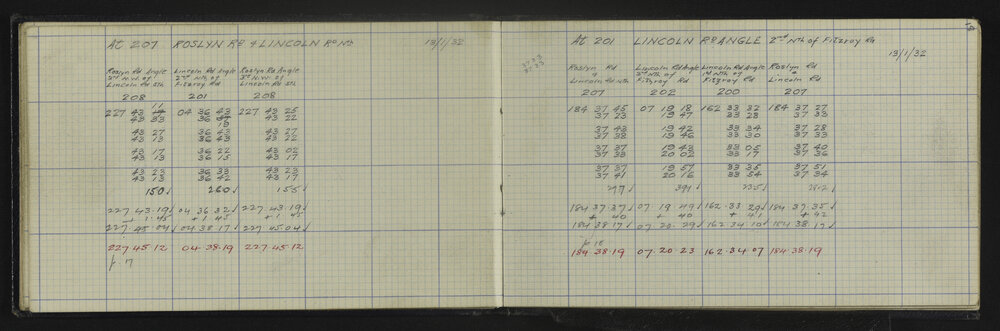 At 207 ROSLYN RD & LINCOLN RD Nth 13/1/32
Roslyn Rd Angle Lincoln Rd Angle Roslyn Rd Angle
Lincoln Rd Sth Fitzroy Rd Lincoln Rd Sth
208 201 208
227 43 04 36 43 227 43 25
43 33 36 43 22
43 27 36 43 43 27
43 13 36 43 43 22
43 17 36 22 43 02
43 13 36 15 43 17
43 23 36 33 43 23
43 13 36 42 43 17
150 260 155
227 43·19 04 36 32 227 43·19
+ 1·45 +1 45 +1·45
227·45 04 04 38·17 227 45 04
227·45·12 04·38·19 227·45·12
p 17
49
At 201 LINCOLN RD ANGLE 2nd Nth of Fitzroy Rd
13/1/32
37 33
37 33
Roslyn Rd Lincoln Rd Angle Lincoln Rd Angle Roslyn Rd
& 3rd Nth of 1st Nth of &
Lincoln Rd Nth Fitzroy Rd Fitzroy Rd Lincoln Rd
207 202 200 207
184 37 45 07 19 18 162 33 32 184 37 27
37 23 19 47 33 28 37 33
37 43 19 42 33 34 37 28
37 38 19 46 33 30 37 33
37 37 19 43 33 05 37 40
37 33 20 02 33 17 37 36
37 37 19 57 33 35 37 51
37 41 20 16 33 54 37 34
297 391 235 282
184 37·37 07 19 49 162·33 29 184 37·35
+ 40 + 40 + 41 + 42
184 38·17 07 20·29 162 34 10 184 38·17
p 18
184 38·19 07 20·23 162·34 07 184·38·19